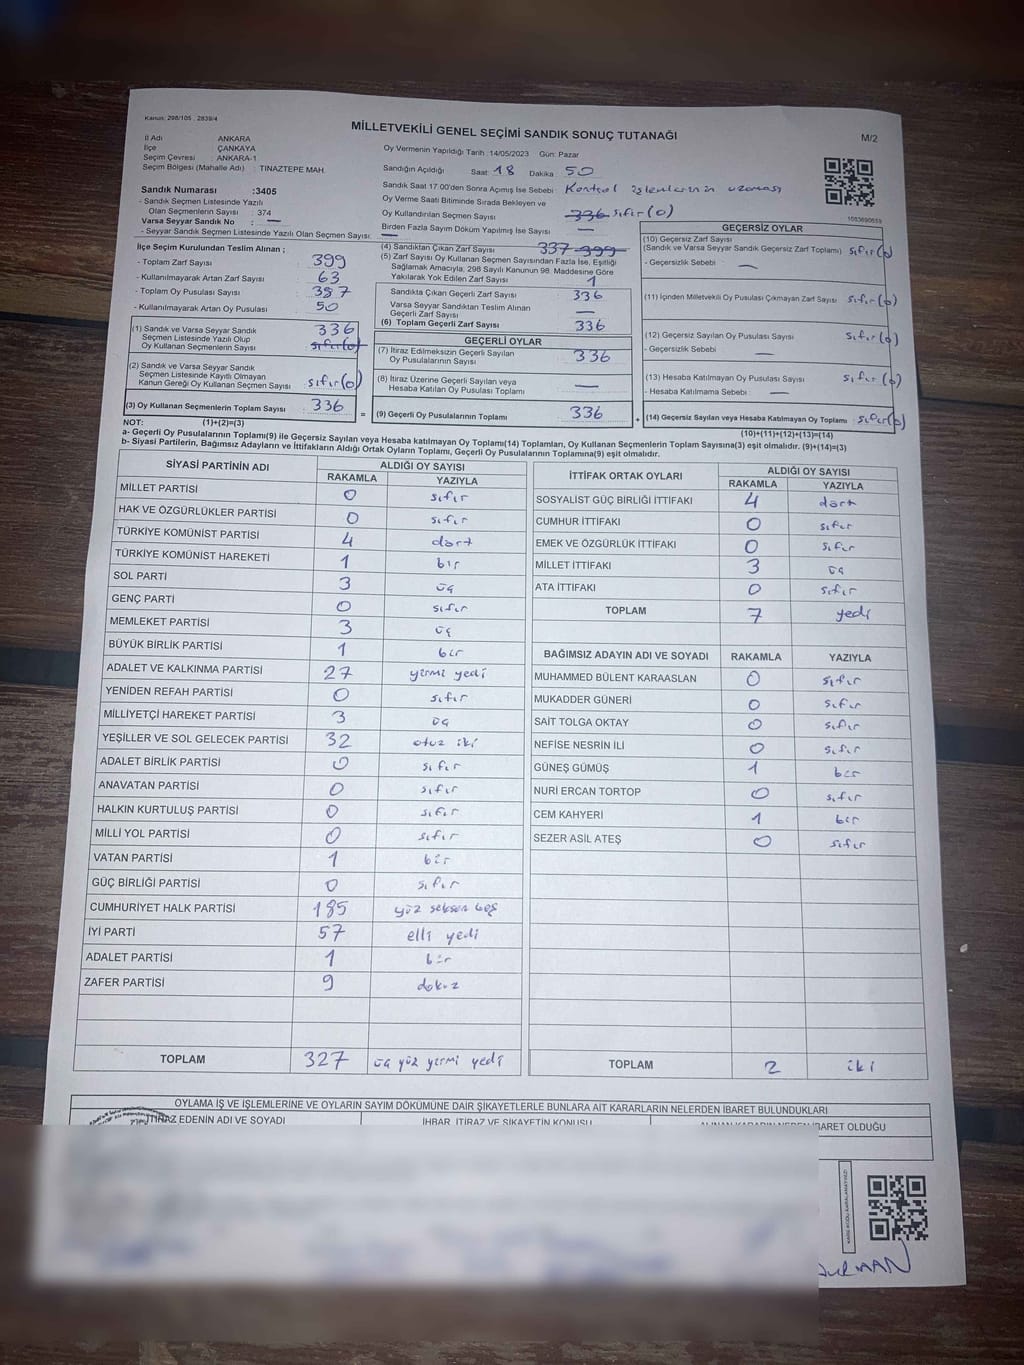 Kanun: 298/105 , 2839/4
MİLLETVEKİLİ GENEL SEÇİMİ SANDIK SONUÇ TUTANAĞI
M/2
İl Adı : ANKARA
İlçe : ÇANKAYA
Seçim Çevresi : ANKARA-1
Seçim Bölgesi (Mahalle Adı) : TINAZTEPE MAH.
Sandık Numarası :3405
- Sandık Seçmen Listesinde Yazılı
Olan Seçmenlerin Sayısı : 374
Varsa Seyyar Sandık No : —
- Seyyar Sandık Seçmen Listesinde Yazılı Olan Seçmen Sayısı: —
Oy Vermenin Yapıldığı Tarih :14/05/2023 Gün: Pazar
Sandığın Açıldığı Saat: 18 Dakika : 50
Sandık Saat 17.00'den Sonra Açımış İse Sebebi : Kontrol işlemlerinin uzaması
Oy Verme Saati Bitiminde Sırada Bekleyen ve
Oy Kullandırılan Seçmen Sayısı : 336 sıfır(0)
Birden Fazla Sayım Döküm Yapılmış İse Sayısı : —
1053690553
İlçe Seçim Kurulundan Teslim Alınan ;
- Toplam Zarf Sayısı : 399
- Kullanılmayarak Artan Zarf Sayısı : 63
- Toplam Oy Pusulası Sayısı : 387
- Kullanılmayarak Artan Oy Pusulası : 50
(1) Sandık ve Varsa Seyyar Sandık
Seçmen Listesinde Yazılı Olup
Oy Kullanan Seçmenlerin Sayısı : 336 sıfır(0)
(2) Sandık ve Varsa Seyyar Sandık
Seçmen Listesinde Kayıtlı Olmayan
Kanun Gereği Oy Kullanan Seçmen Sayısı : sıfır(0)
(3) Oy Kullanan Seçmenlerin Toplam Sayısı : 336
(4) Sandıktan Çıkan Zarf Sayısı : 337 399
(5) Zarf Sayısı Oy Kullanan Seçmen Sayısından Fazla İse, Eşitliği
Sağlamak Amacıyla, 298 Sayılı Kanunun 98. Maddesine Göre
Yakılarak Yok Edilen Zarf Sayısı : 1
Sandıkta Çıkan Geçerli Zarf Sayısı : 336
Varsa Seyyar Sandıktan Teslim Alınan
Geçerli Zarf Sayısı : —
(6) Toplam Geçerli Zarf Sayısı : 336
GEÇERLİ OYLAR
(7) İtiraz Edilmeksizin Geçerli Sayılan
Oy Pusulalarının Sayısı : 336
(8) İtiraz Üzerine Geçerli Sayılan veya
Hesaba Katılan Oy Pusulaları Toplamı : —
= (9) Geçerli Oy Pusulalarının Toplamı : 336
GEÇERSİZ OYLAR
(10) Geçersiz Zarf Sayısı
(Sandık ve Varsa Seyyar Sandık Geçersiz Zarf Toplamı) : sıfır(0)
- Geçersizlik Sebebi : —
(11) İçinden Milletvekili Oy Pusulası Çıkmayan Zarf Sayısı : sıfır(0)
(12) Geçersiz Sayılan Oy Pusulası Sayısı : sıfır(0)
- Geçersizlik Sebebi : —
(13) Hesaba Katılmayan Oy Pusulası Sayısı : sıfır(0)
- Hesaba Katılmama Sebebi : —
+ (14) Geçersiz Sayılan veya Hesaba Katılmayan Oy Toplamı : sıfır(0)
NOT: (1)+(2)=(3)
(10)+(11)+(12)+(13)=(14)
a- Geçerli Oy Pusulalarının Toplamı(9) ile Geçersiz Sayılan veya Hesaba katılmayan Oy Toplamı(14) Toplamları, Oy Kullanan Seçmenlerin Toplam Sayısına(3) eşit olmalıdır. (9)+(14)=(3)
b- Siyasi Partilerin, Bağımsız Adayların ve İttifakların Aldığı Ortak Oyların Toplamı, Geçerli Oy Pusulalarının Toplamına(9) eşit olmalıdır.
SİYASİ PARTİNİN ADI ALDIĞI OY SAYISI
RAKAMLA YAZIYLA
MİLLET PARTİSİ 0 sıfır
HAK VE ÖZGÜRLÜKLER PARTİSİ 0 sıfır
TÜRKİYE KOMÜNİST PARTİSİ 4 dört
TÜRKİYE KOMÜNİST HAREKETİ 1 bir
SOL PARTİ 3 üç
GENÇ PARTİ 0 sıfır
MEMLEKET PARTİSİ 3 üç
BÜYÜK BİRLİK PARTİSİ 1 bir
ADALET VE KALKINMA PARTİSİ 27 yirmi yedi
YENİDEN REFAH PARTİSİ 0 sıfır
MİLLİYETÇİ HAREKET PARTİSİ 3 üç
YEŞİLLER VE SOL GELECEK PARTİSİ 32 otuz iki
ADALET BİRLİK PARTİSİ 0 sıfır
ANAVATAN PARTİSİ 0 sıfır
HALKIN KURTULUŞ PARTİSİ 0 sıfır
MİLLİ YOL PARTİSİ 0 sıfır
VATAN PARTİSİ 1 bir
GÜÇ BİRLİĞİ PARTİSİ 0 sıfır
CUMHURİYET HALK PARTİSİ 185 yüz seksen beş
İYİ PARTİ 57 elli yedi
ADALET PARTİSİ 1 bir
ZAFER PARTİSİ 9 dokuz
TOPLAM 327 üç yüz yirmi yedi
İTTİFAK ORTAK OYLARI ALDIĞI OY SAYISI
RAKAMLA YAZIYLA
SOSYALİST GÜÇ BİRLİĞİ İTTİFAKI 4 dört
CUMHUR İTTİFAKI 0 sıfır
EMEK VE ÖZGÜRLÜK İTTİFAKI 0 sıfır
MİLLET İTTİFAKI 3 üç
ATA İTTİFAKI 0 sıfır
TOPLAM 7 yedi
BAĞIMSIZ ADAYIN ADI VE SOYADI RAKAMLA YAZIYLA
MUHAMMED BÜLENT KARAASLAN 0 sıfır
MUKADDER GÜNERİ 0 sıfır
SAİT TOLGA OKTAY 0 sıfır
NEFİSE NESRİN İLİ 0 sıfır
GÜNEŞ GÜMÜŞ 1 bir
NURİ ERCAN TORTOP 0 sıfır
CEM KAHYERİ 1 bir
SEZER ASİL ATEŞ 0 sıfır
TOPLAM 2 iki
OYLAMA İŞ VE İŞLEMLERİNE VE OYLARIN SAYIM DÖKÜMÜNE DAİR ŞİKAYETLERLE BUNLARA AİT KARARLARIN NELERDEN İBARET BULUNDUKLARI
İTİRAZ EDENİN ADI VE SOYADI İHBAR, İTİRAZ VE ŞİKAYETİN KONUSU ALINAN KARARIN NEDEN İBARET OLDUĞU
KARE KODU KARALAMAYINIZ!